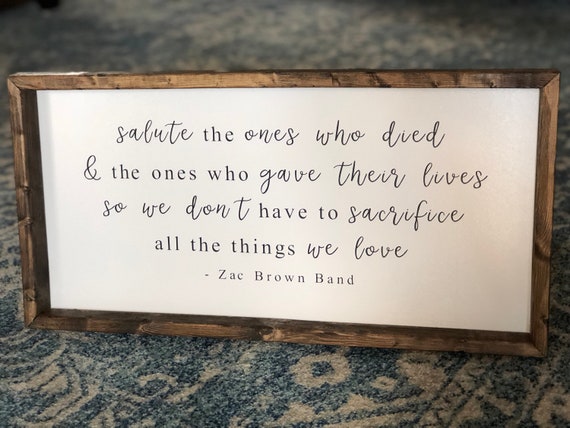 salute the ones who died
& the ones who gave their lives
so we don't have to sacrifice
all the things we love
- Zac Brown Band